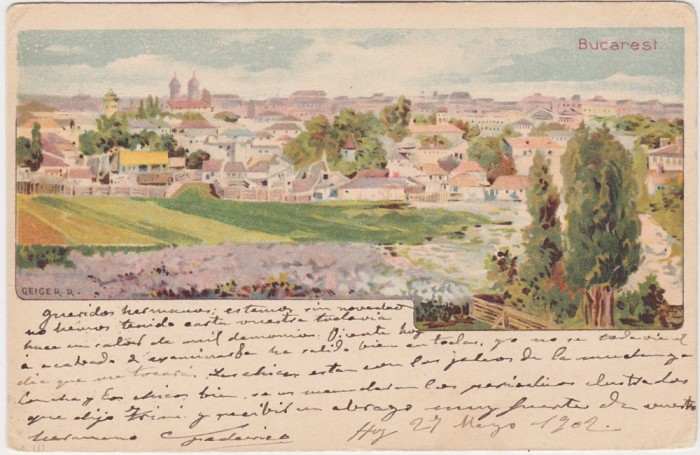 Bucarest
GEIGER-R.
queridos hermanos, estamos sin novedad
no hemos tenido carta vuestra todavia
hace un calor de mil demonios. Vicente hoy
á acabado d' examinarse ha salido bien á todas, yo no se todavia el
dia que me tocará. Las chicas estan con los jaleos de la mudanza
Concha y los chicos bien. se os mandaran los periodicos ilustrados
que dijo Trini y recibir un abrazo muy fuerte de vuestro
hermano Federico
Hoy 27 Mayo 1902.